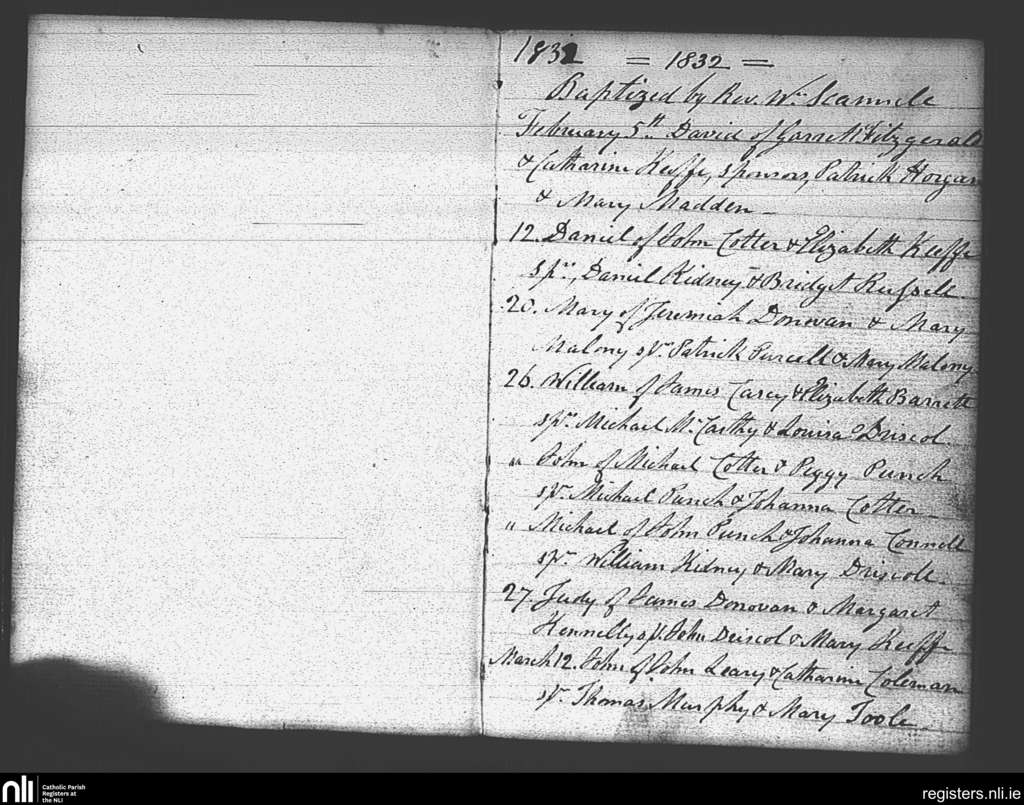 1832 = 1832 =
Baptized by Rev. Wm. Scannele
February 5th. David of Garrett Fitzgerald
& Catharine Keeffe, sponsors, Patrick Horgan
& Mary Madden -
12. Daniel of John Cotter & Elizabeth Keeffe
sprs, Daniel Kidney & Bridget Russell
20. Mary of Jeremiah Donovan & Mary
Malony spr. Patrick Purcell & Mary Malony
26. William of James Carey & Elizabeth Barrett
sprs. Michael McCarthy & Louisa Driscol
" John of Michael Cotter & Peggy Punch
spr. Michael Punch & Johanna Cotter
" Michael of John Punch & Johanna Connell
sprs William Kidney & Mary Driscoll.
27. Judy of James Donovan & Margaret
Hennelly spr. John Driscol & Mary Keeffe
March 12. John of John Leary & Catharine Coleman
spr. Thomas Murphy & Mary Toole
nli Catholic Parish
Registers at
the NLI
registers.nli.ie